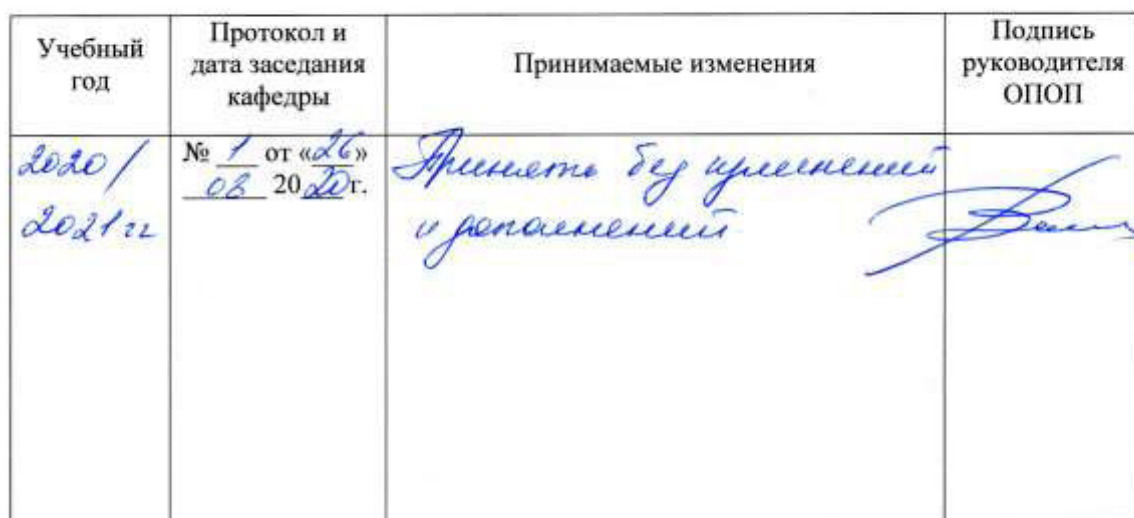 Учебный год
Протокол и дата заседания кафедры
Принимаемые изменения
Подпись руководителя ОПОП
2020 /
2021 гг
№ 1 от «26»
08 2020г.
Принять без изменений
и дополнений